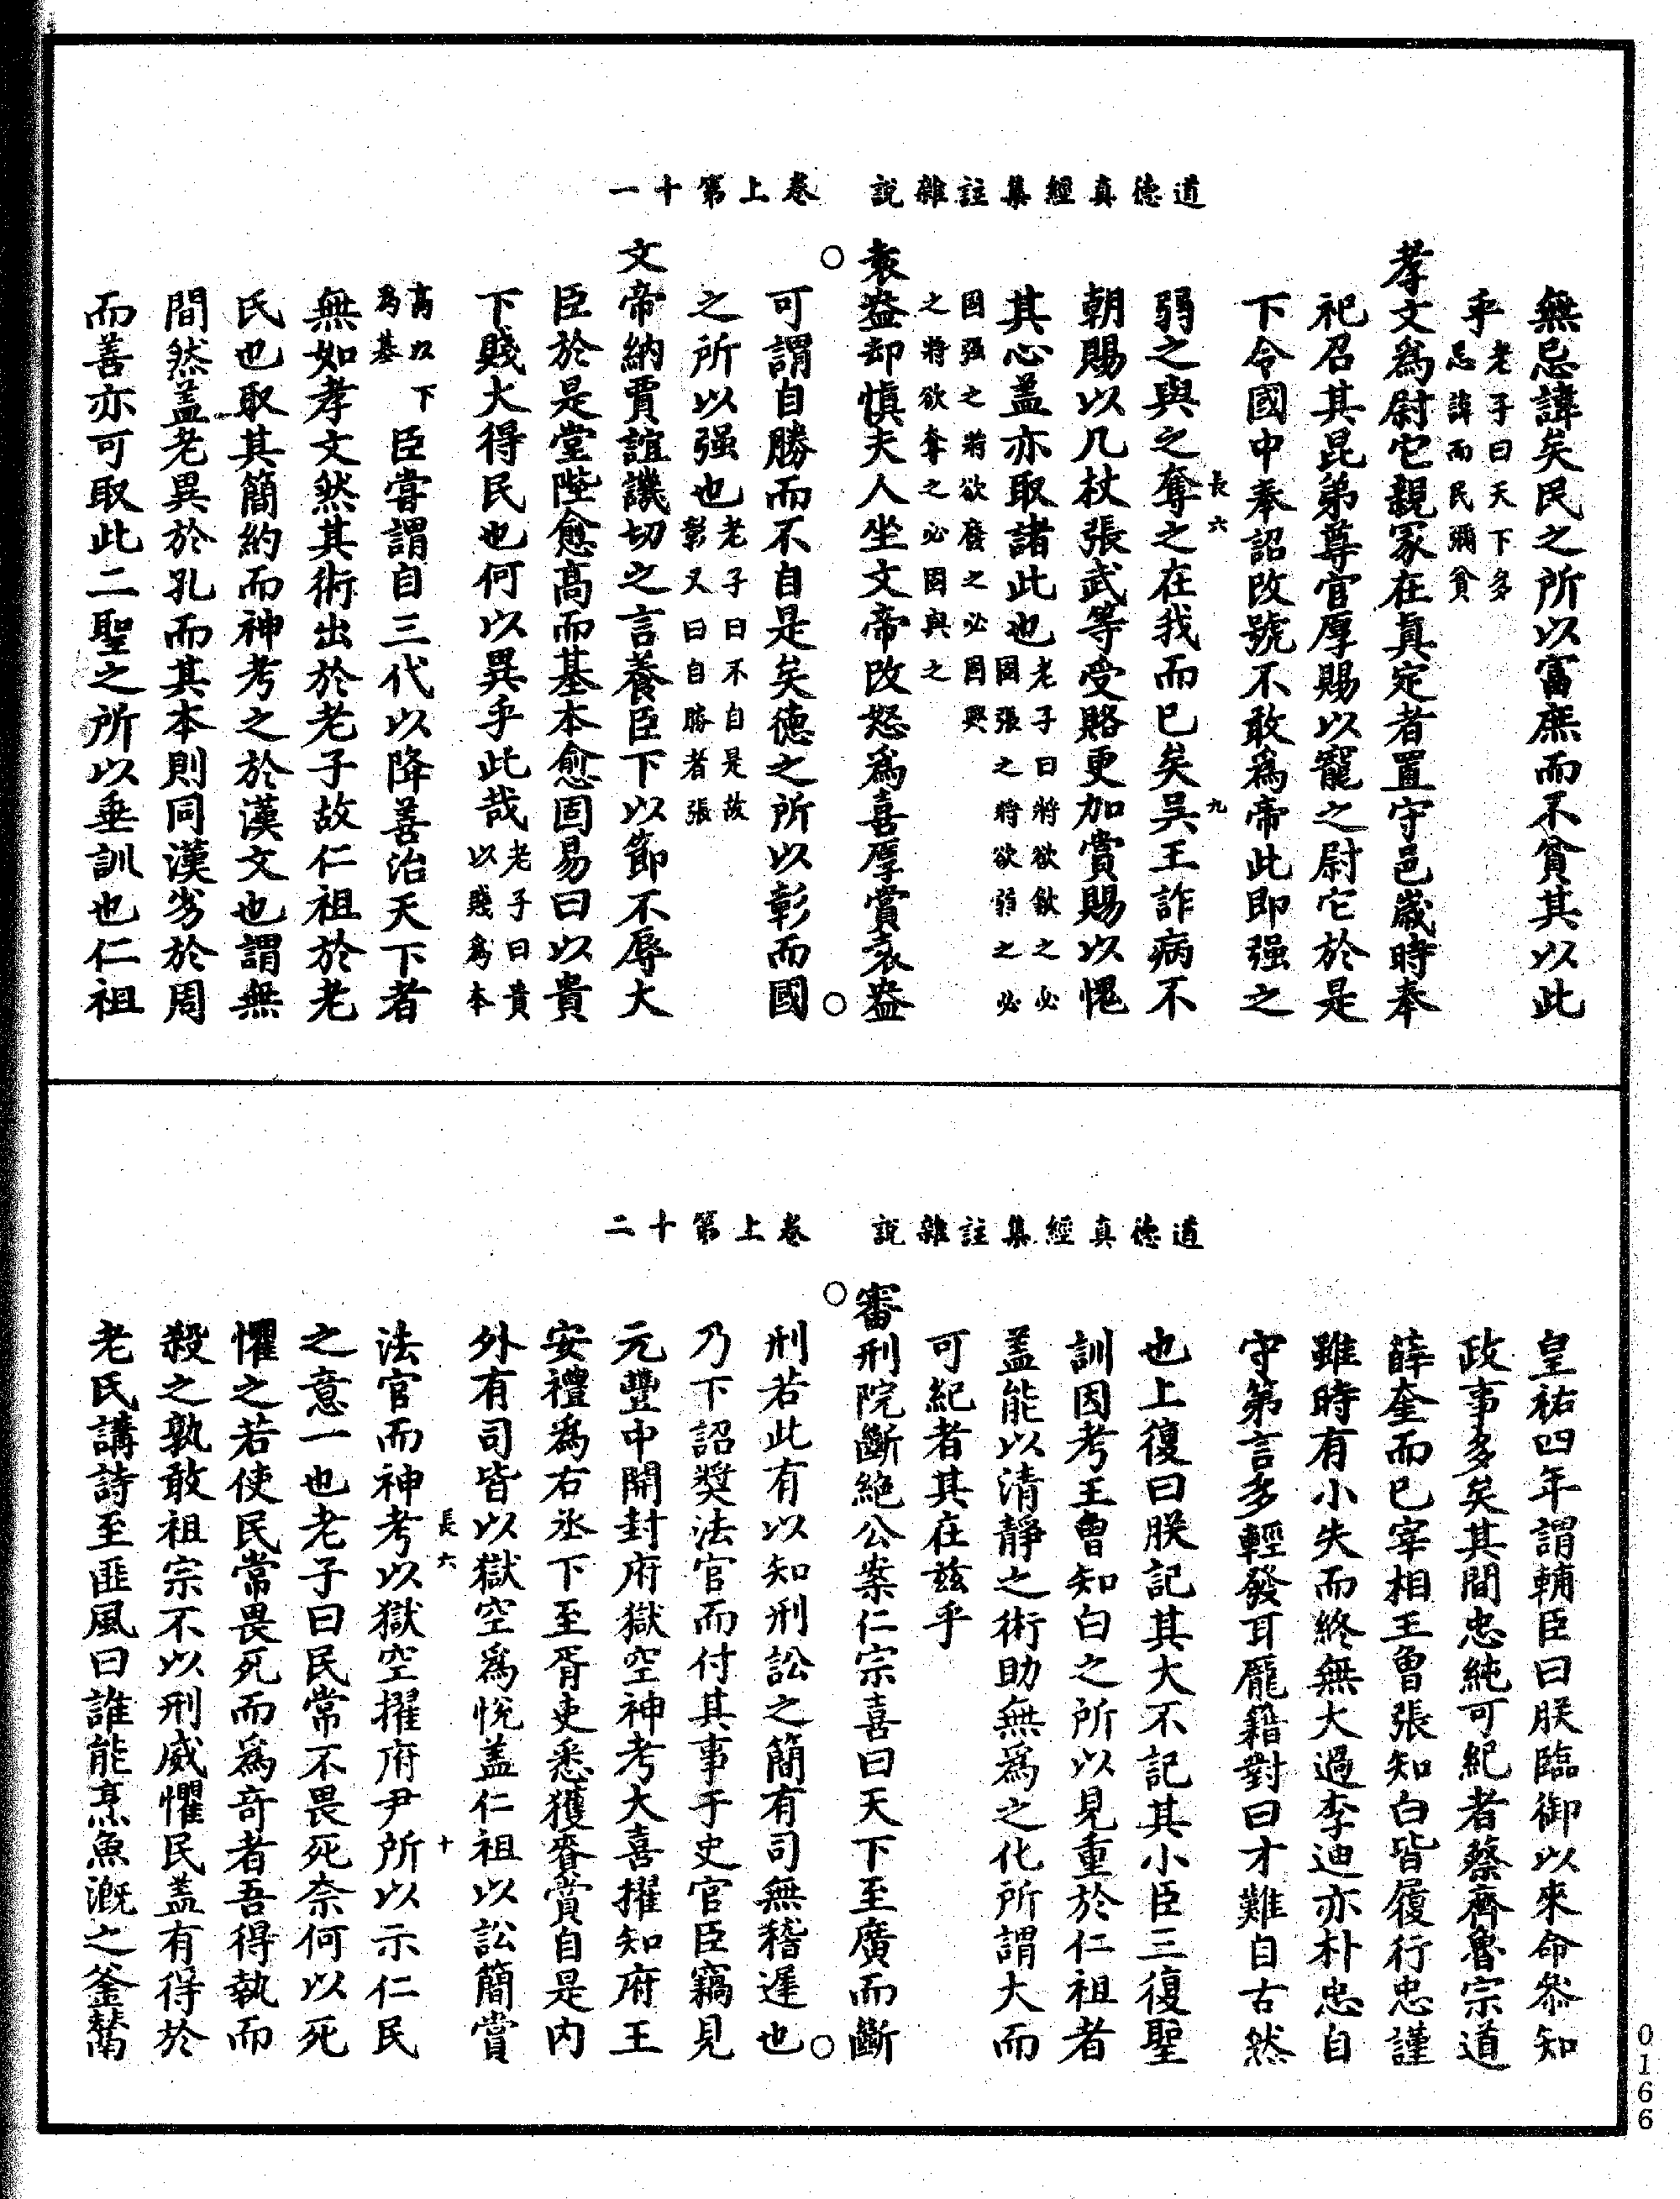 道德真經集註雜說　卷上第十一
無忌諱矣民之所以富庶而不貧其以此
乎老子曰天下多忌諱而民彌貧
孝文爲尉它親冢在真定者置守邑歲時奉
祀召其昆弟尊官厚賜以寵之尉它於是
下令國中奉詔改號不敢爲帝此即强之
長六　九
弱之與之奪之在我而已矣吳王詐病不
朝賜以几杖張武等受賂更加賞賜以愧
其心蓋亦取諸此也老子曰將欲歙之必固張之將欲弱之必
固强之將欲廢之必固興之將欲奪之必固與之
○袁盎却慎夫人坐文帝改怒爲喜厚賞袁盎○
可謂自勝而不自是矣德之所以彰而國
之所以强也老子曰不自是故彰又曰自勝者張
文帝納賈誼譏切之言養臣下以節不辱大
臣於是堂陛愈高而基本愈固易曰以貴
下賤大得民也何以異乎此哉老子曰貴以賤爲本
高以下爲基臣嘗謂自三代以降善治天下者
無如孝文然其術出於老子故仁祖於老
氏也取其簡約而神考之於漢文也謂無
間然蓋老異於孔而其本則同漢劣於周
而善亦可取此二聖之所以垂訓也仁祖
道德真經集註雜說　卷上第十二
皇祐四年謂輔臣曰朕臨御以來命參知
政事多矣其間忠純可紀者蔡齊魯宗道
薛奎而已宰相王曾張知白皆履行忠謹
雖時有小失而終無大過李迪亦朴忠自
守第言多輕發耳龐籍對曰才難自古然
也上復曰朕記其大不記其小臣三復聖
訓因考王曾知白之所以見重於仁祖者
蓋能以清靜之術助無爲之化所謂大而
可紀者其在茲乎
○審刑院斷絕公案仁宗喜曰天下至廣而斷
刑若此有以知刑訟之簡有司無稽遲也○
乃下詔奬法官而付其事于史官臣竊見
元豐中開封府獄空神考大喜擢知府王
安禮爲右丞下至胥吏悉獲賚賞自是內
外有司皆以獄空爲悅蓋仁祖以訟簡賞
長六　十
法官而神考以獄空擢府尹所以示仁民
之意一也老子曰民常不畏死柰何以死
懼之若使民常畏死而爲奇者吾得執而
殺之孰敢祖宗不以刑威懼民蓋有得於
老氏講詩至匪風曰誰能烹魚溉之釜鬵
0166